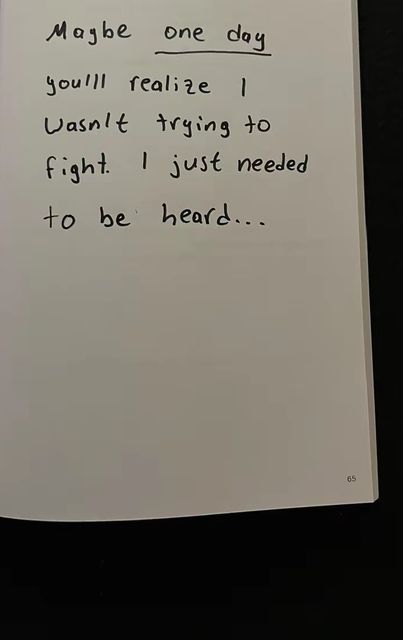 Maybe one day
you'll realize I
wasn't trying to
fight. I just needed
to be heard...
65